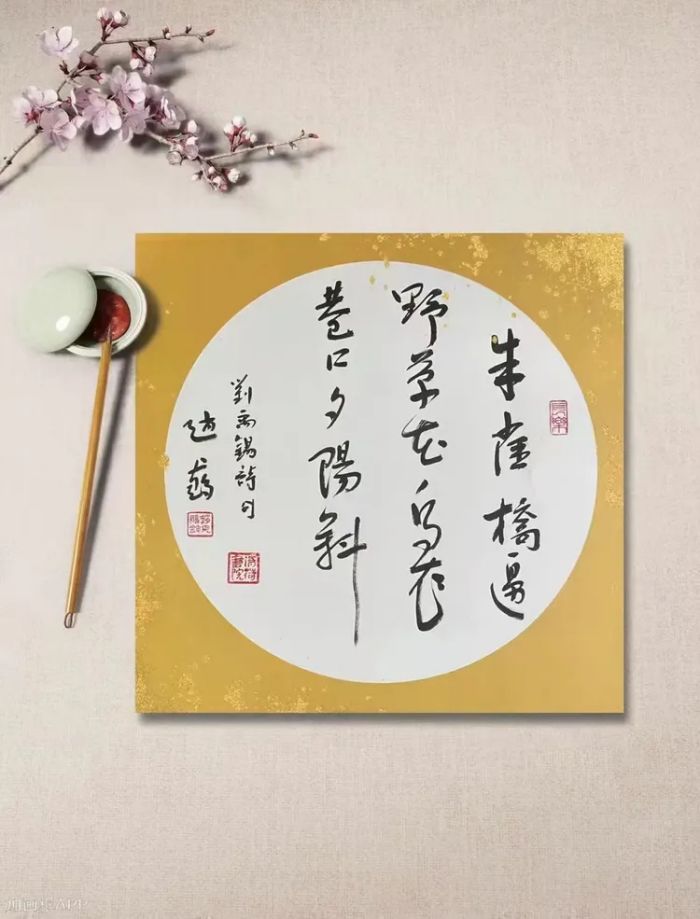 朱雀橋邊
野草花烏衣
巷口夕陽斜
劉禹錫詩句
趙